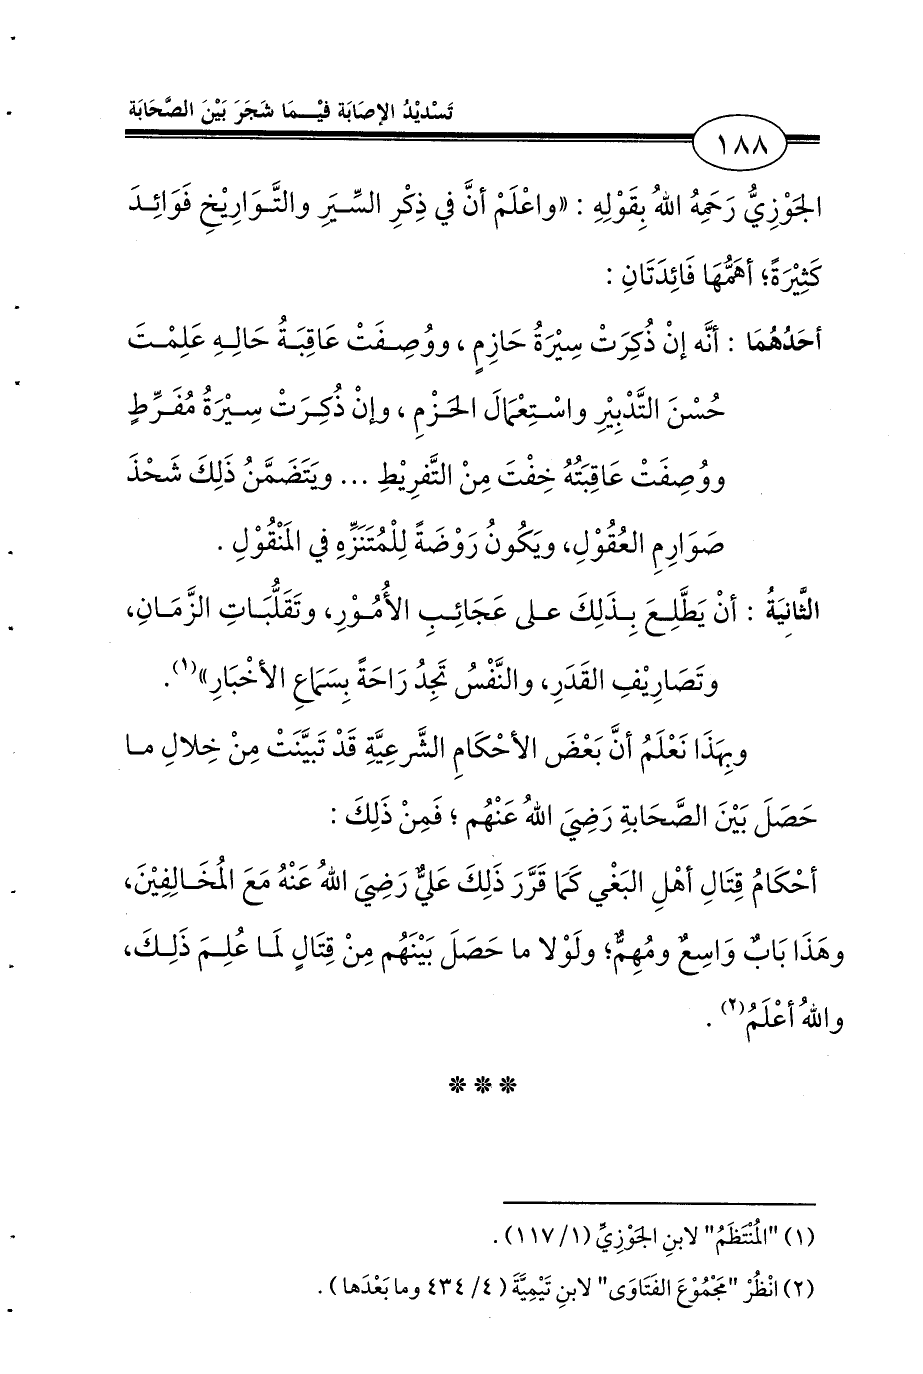 تَسْدِيْدُ الإصَابَة فيْـمَا شَجَرَ بَيْنَ الصَّحَابَة
١٨٨
الجَوْزِيُّ رَحِمَهُ اللهُ بقَوْلِهِ : «واعْلَمْ أنَّ في ذِكْرِ السِّيَرِ والتَّوَارِيْخِ فَوَائِدَ
كَثِيْرَةً؛ أهَمُّهَا فَائِدَتَانِ :
أحَدُهُمَا : أنَّه إنْ ذُكِرَتْ سِيْرَةُ حَازِمٍ ، ووُصِفَتْ عَاقِبَةُ حَالِهِ عَلِمْتَ
حُسْنَ التَّدْبِيْرِ واسْتِعْمَالَ الحَزْمِ ، وإنْ ذُكِرَتْ سِيْرَةُ مُفَرِّطٍ
ووُصِفَتْ عَاقِبَتُهُ خِفْتَ مِنْ التَّفْرِيْطِ ... ويَتَضَمَّنُ ذَلِكَ شَحْذَ
صَوَارِمِ العُقُوْلِ، ويَكُونُ رَوْضَةً لِلْمُتَنَزِّهِ في المَنْقُوْلِ .
الثَّانِيَةُ : أنْ يَطَّلِعَ بِذَلِكَ على عَجَائِبِ الأُمُوْرِ، وتَقَلُّبَاتِ الزَّمَانِ،
وتَصَارِيْفِ القَدَرِ، والنَّفْسُ تَجِدُ رَاحَةً بِسَمَاعِ الأخْبَارِ»(١).
وبِهَذَا نَعْلَمُ أنَّ بَعْضَ الأحْكَامِ الشَّرعِيَّةِ قَدْ تَبيَّنَتْ مِنْ خِلالِ ما
حَصَلَ بَيْنَ الصَّحَابةِ رَضِيَ اللهُ عَنْهُم ؛ فَمِنْ ذَلِكَ :
أحْكَامُ قِتَالِ أهْلِ البَغْي كَمَا قَرَّرَ ذَلِكَ عَليٌّ رَضِيَ اللهُ عَنْهُ مَعَ المُخَالِفِيْنَ،
وهَذَا بَابٌ وَاسِعٌ ومُهِمٌّ؛ ولَوْلا ما حَصَلَ بَيْنَهُم مِنْ قِتَالٍ لمَا عُلِمَ ذَلِكَ،
واللهُ أعْلَمُ(٢) .
***
(١) "المُنْتَظَمُ" لابنِ الجَوْزِيِّ (١/ ١١٧) .
(٢) انْظُرْ "مَجْمُوْعَ الفَتَاوَى" لابنِ تَيْمِيَّةَ ( ٤/ ٤٣٤ وما بَعْدَها ) .